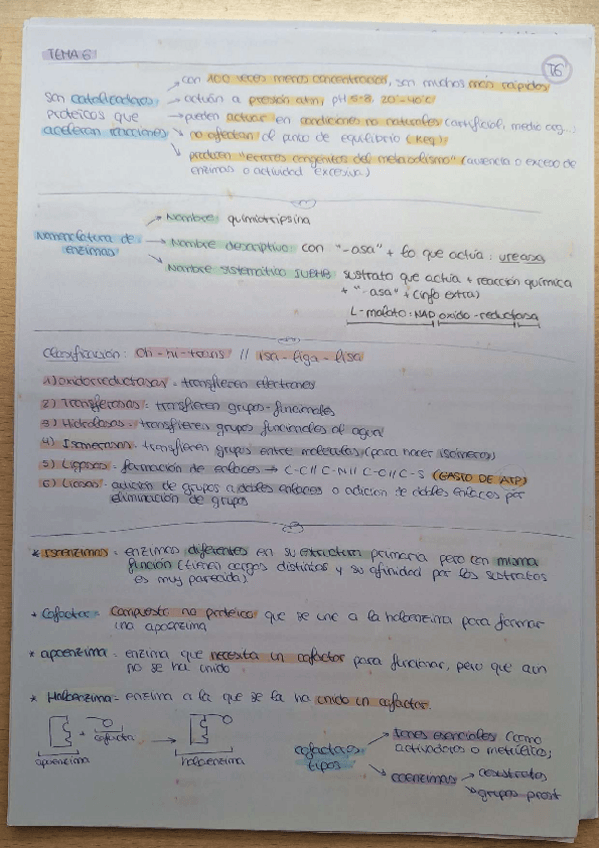 TEMA 6
T6
con 100 veces menos concentración, son muchos más rápidos
son catalizadores
proteicos que
aceleran reacciones
actúan a presión atm, pH 5-8, 20º-40ºC
pueden actuar en condiciones no naturales (artificial, medio org...)
no afectan al punto de equilibrio (Keq)
producen "errores congénitos del metabolismo" (ausencia o exceso de
enzimas o actividad excesiva)
Nomenclatura de
enzimas
Nombre: quimiotripsina
Nombre descriptivo: con "-asa" + lo que actúa: ureasa
Nombre sistemático: sustrato que actúa + reacción química
+ "-asa" + (info extra)
L-malato: NAD oxido-reductasa
Clasificación: Oh-hi-trans // isa-liga-lisa
1) oxidorreductasas = transfieren electrones
2) Transferasas = transfieren grupos funcionales
3) Hidrolasas = transfieren grupos funcionales al agua
4) Isomerasas = transfieren grupos entre moléculas (para hacer isómeros)
5) Ligasas = formación de enlaces → C-C // C-N // C-O // C-S (GASTO DE ATP)
6) Liasas = adición de grupos a dobles enlaces o adición de dobles enlaces por
eliminación de grupos
* Isoenzimas = enzimas diferentes en su estructura primaria pero con misma
función (tienen cargas distintas y su afinidad por los sustratos
es muy parecida)
* Cofactor = Compuesto no proteico que se une a la holoenzima para formar
una apoenzima
* apoenzima = enzima que necesita un cofactor para funcionar, pero que aun
no se ha unido
* Holoenzima = enzima a la que se la ha unido un cofactor.
+ cofactor
apoenzima
holoenzima
cofactores
tipos
iones esenciales (como
activadores o metálicos)
coenzimas
cosustratos
grupos prost